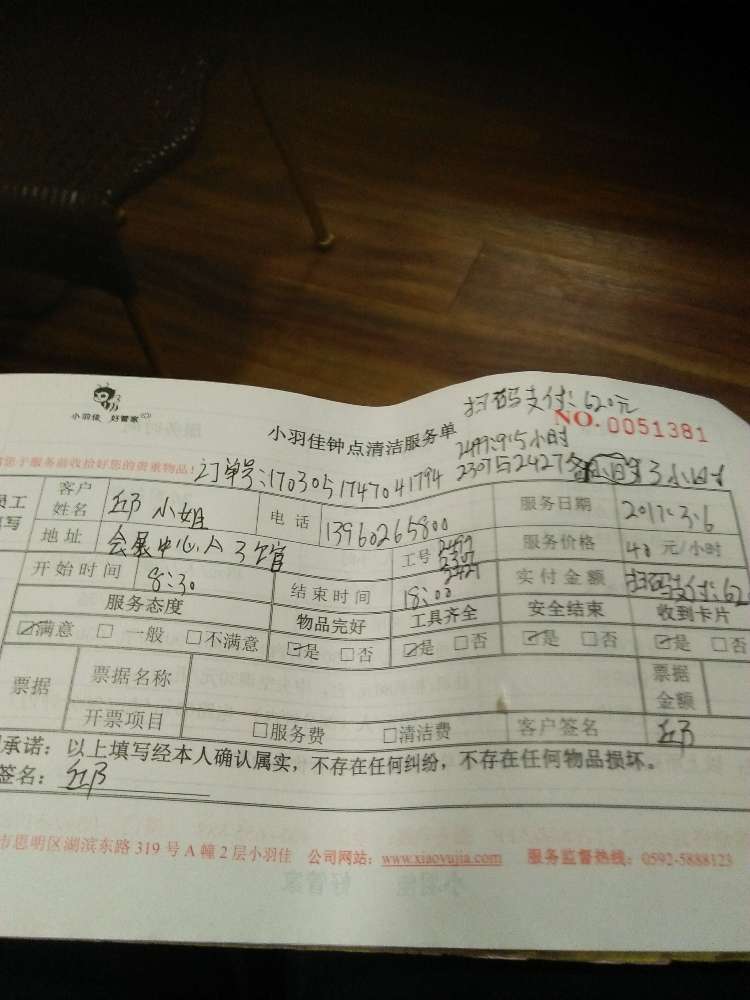 扫码支付:620元
小羽佳 好管家
小羽佳钟点清洁服务单
NO. 0051381
2497:9.5小时
您于服务前收拾好您的贵重物品!
订单号:1703051747041794
2307与2427各 3小时
员工
填写
客户
姓名
邱小姐
电话
13960265800
服务日期
2017.3.6
地址
会展中心A3馆
工号
2497
2307
2427
服务价格
40元/小时
开始时间
8:30
结束时间
18:00
实付金额
扫码支付:62
服务态度
物品完好
工具齐全
安全结束
收到卡片
☑满意 □一般 □不满意
☑是 □否
☑是 □否
☑是 □否
☑是 □否
票据
票据名称
票据
金额
开票项目
□服务费
□清洁费
客户签名
邱
承诺:以上填写经本人确认属实,不存在任何纠纷,不存在任何物品损坏。
签名:邱
市思明区湖滨东路319号A幢2层小羽佳 公司网站:www.xiaoyujia.com 服务监督热线:0592-5888123